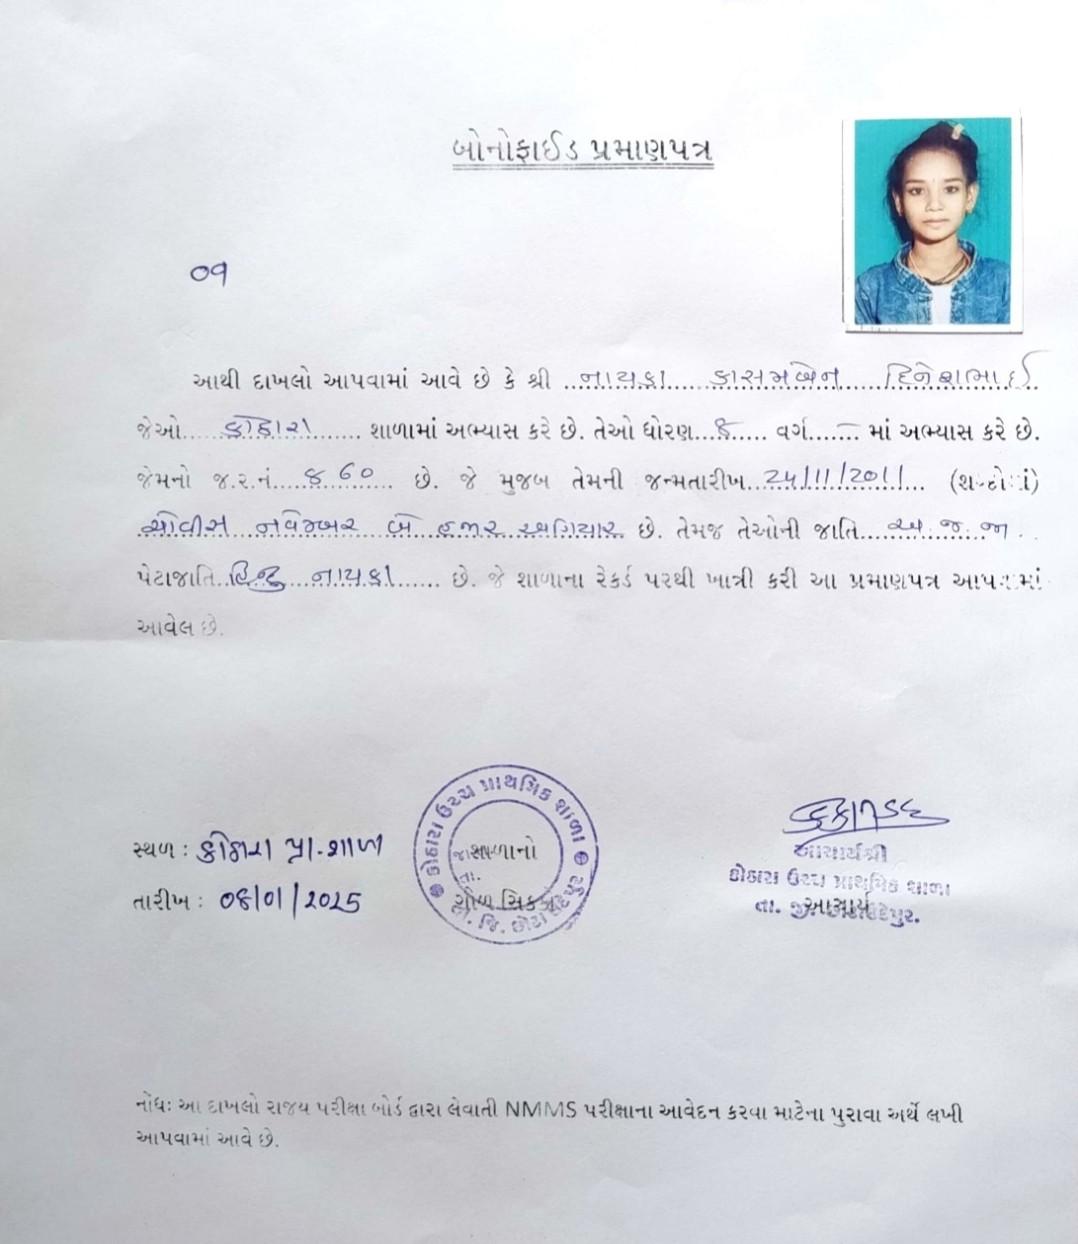 બોનોફાઈડ પ્રમાણપત્ર
૦૧
આથી દાખલો આપવામાં આવે છે કે શ્રી ..નાયકા..... કાસમબેન..... દિનેશભાઈ
જેઓ..... કોઠારા ........ શાળામાં અભ્યાસ કરે છે. તેઓ ધોરણ...૮..... વર્ગ.......– માં અભ્યાસ કરે છે.
જેમનો જ.ર.નં....૮૬૦......... છે. જે મુજબ તેમની જન્મતારીખ..24/11/2011.... (શબ્દોમાં)
ચોવીસ નવેમ્બર બે હજાર અગિયાર છે. તેમજ તેઓની જાતિ...........અ.જ.જા
પેટાજાતિ..હિન્દુ નાયકા...... છે. જે શાળાના રેકર્ડ પરથી ખાત્રી કરી આ પ્રમાણપત્ર આપવામાં
આવેલ છે.
સ્થળ : કોઠારા પ્રા.શાળા
તારીખ : 08/01/2025
કોઠારા ઉચ્ચ પ્રાથમિક શાળા
શાળાનો
ગોળ સિક્કો
જિ. છોટા
આચાર્યશ્રી
કોઠારા ઉચ્ચ પ્રાથમિક શાળા
આચાર્ય
નોંધઃ આ દાખલો રાજય પરીક્ષા બોર્ડ દ્વારા લેવાતી NMMS પરીક્ષાના આવેદન કરવા માટેના પુરાવા અર્થે લખી
આપવામાં આવે છે.